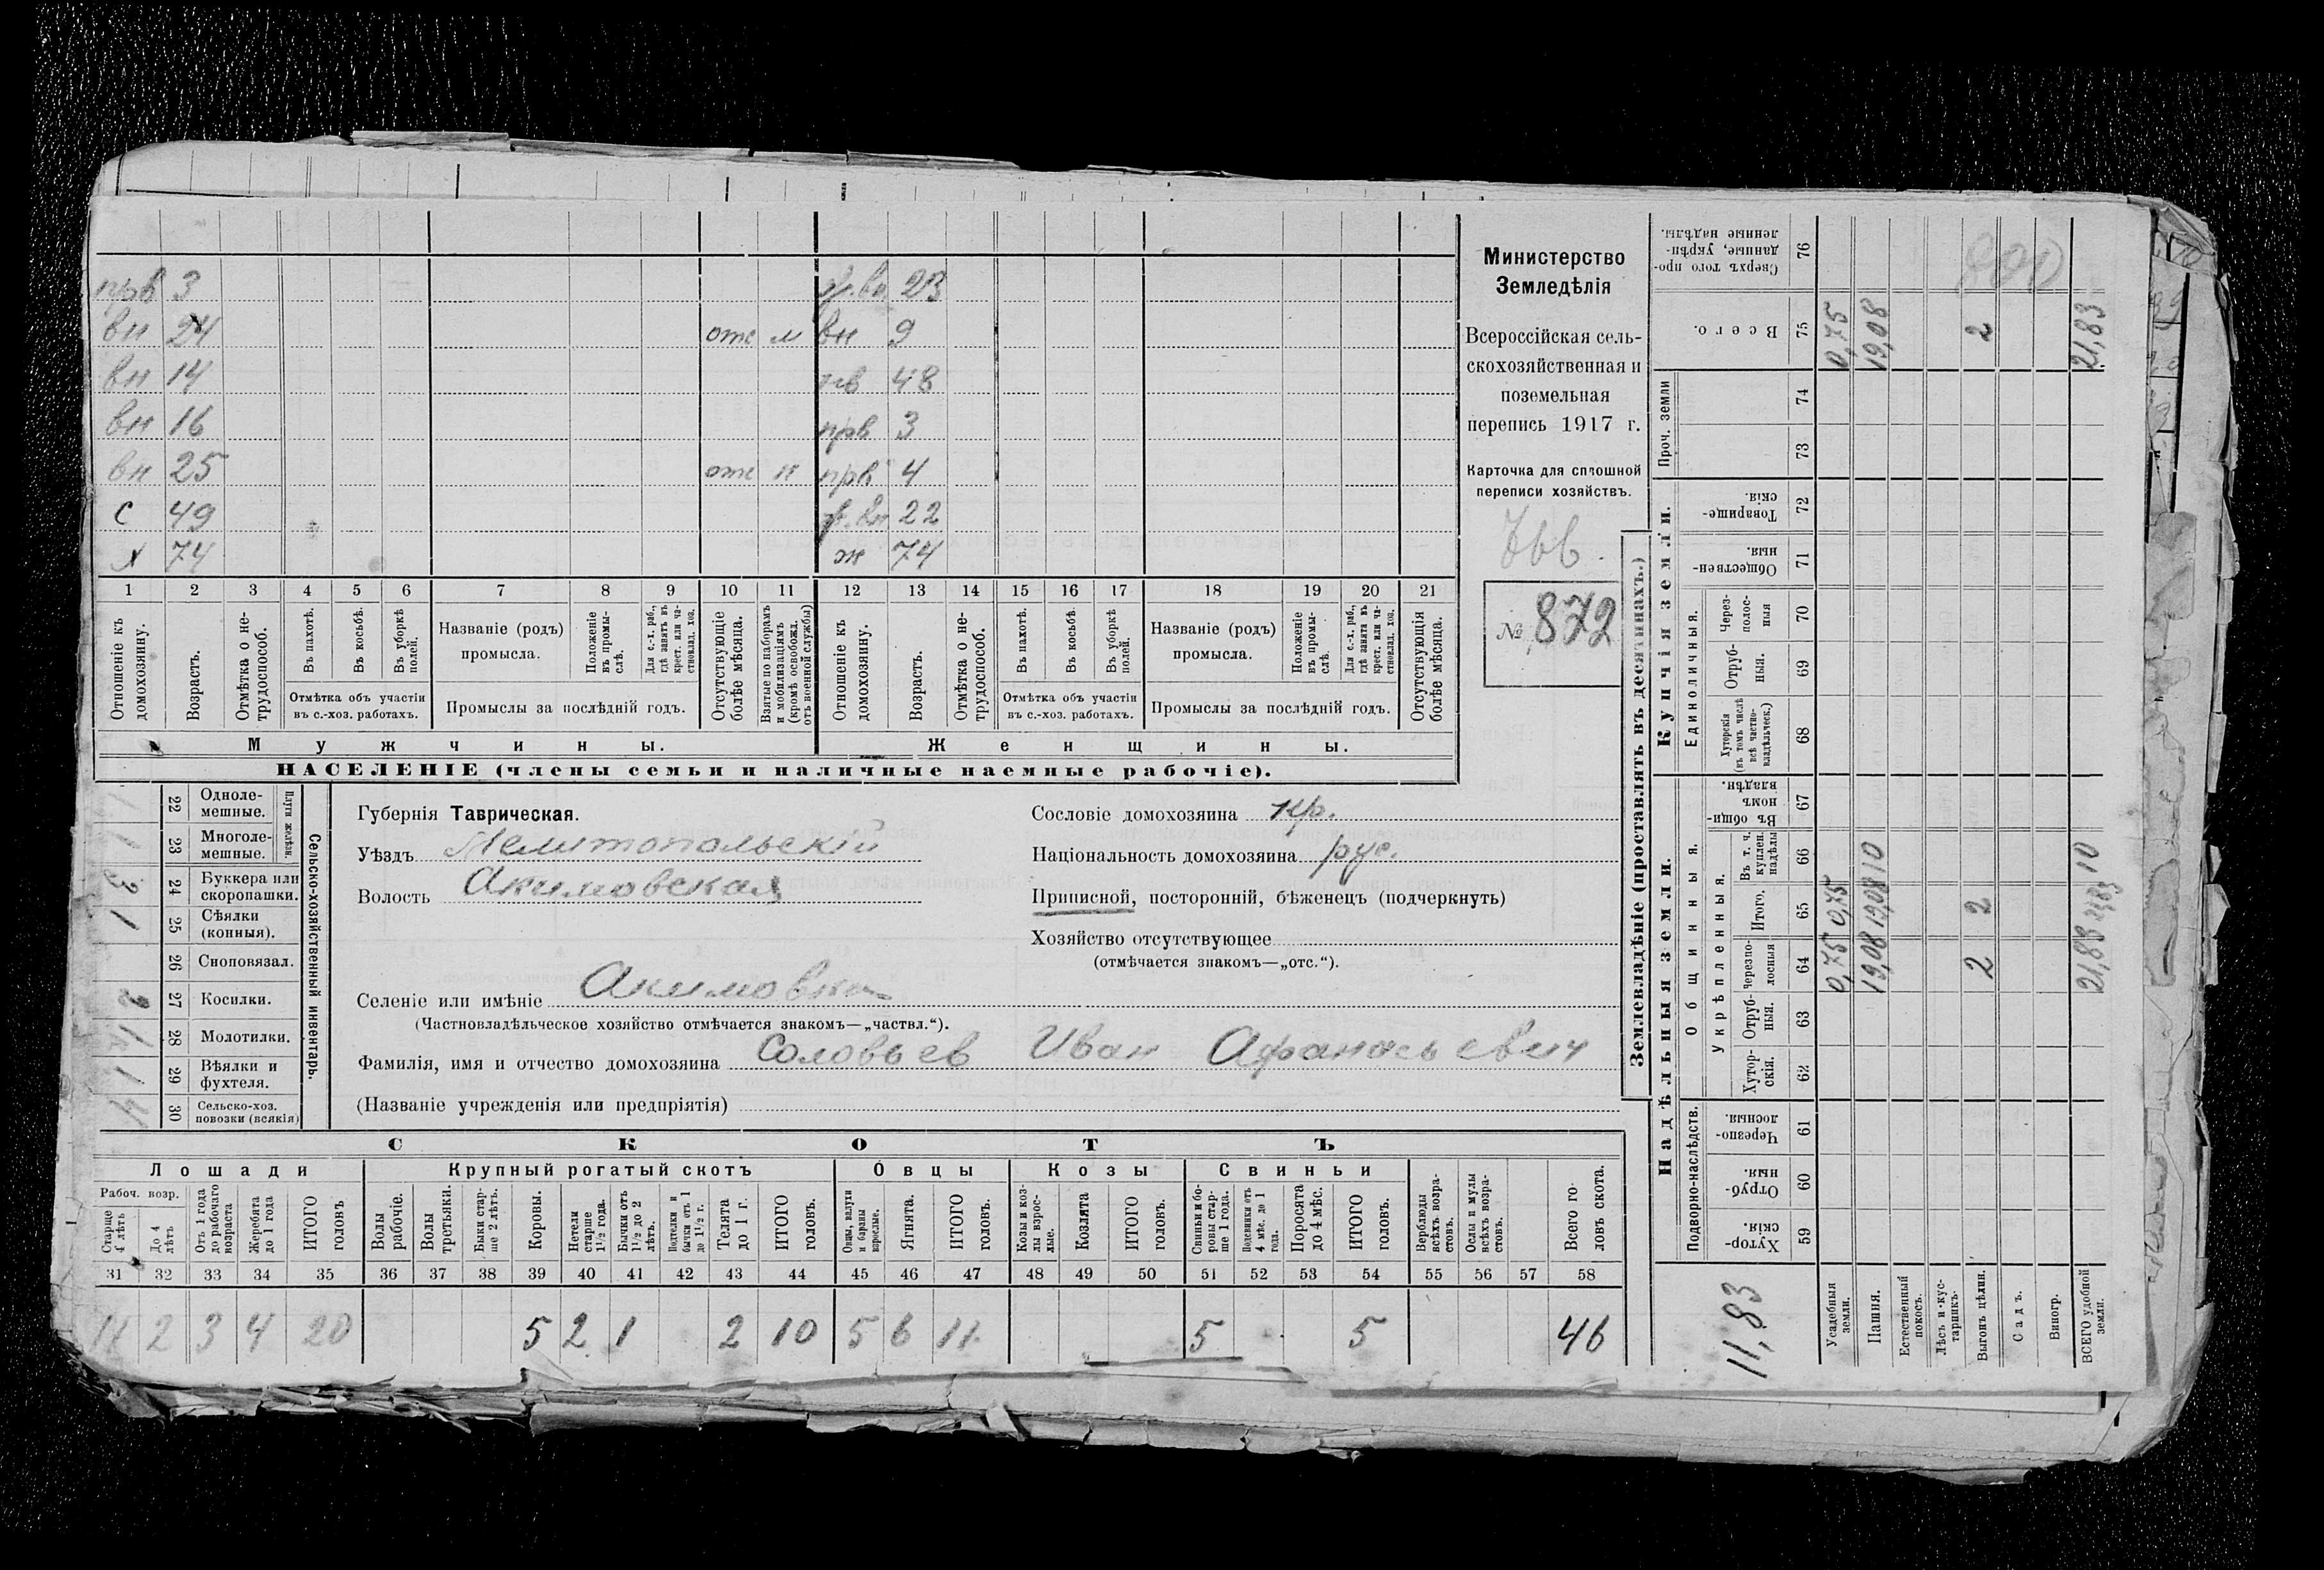 прв 3 ж.вн 23
вн 24 отс м вн 9
вн 14 48
вн 16 прв 3
вн 25 отс прв 4
с 49 ж.вн 22
х 74 ж 74
1 2 3 4 5 6 7 8 9 10 11 12 13 14 15 16 17 18 19 20 21
Отношеніе къ домохозяину.
Возрастъ.
Отмѣтка о не-трудоспособ.
Въ пахотѣ.
Въ косьбѣ.
Въ уборкѣ полей.
Отмѣтка объ участіи
въ с.-хоз. работахъ.
Названіе (родъ)
промысла.
Положеніе въ промы-слѣ.
Для с.-х. раб., гдѣ занятъ въ крест. или ча-стновлад. хоз.
Промыслы за послѣдній годъ.
Отсутствующіе болѣе мѣсяца.
Взятые по наборамъ и мобилизаціямъ (кромѣ освобожд. отъ военной службы)
Отношеніе къ домохозяину.
Возрастъ.
Отмѣтка о не-трудоспособ.
Въ пахотѣ.
Въ косьбѣ.
Въ уборкѣ полей.
Отмѣтка объ участіи
въ с.-хоз. работахъ.
Названіе (родъ)
промысла.
Положеніе въ промы-слѣ.
Для с.-х. раб., гдѣ занята въ крест. или ча-стновлад. хоз.
Промыслы за послѣдній годъ.
Отсутствующія болѣе мѣсяца.
Мужчины.
Женщины.
НАСЕЛЕНІЕ (члены семьи и наличные наемные рабочіе).
Министерство
Земледѣлія
Всероссійская сель-
скохозяйственная и
поземельная
перепись 1917 г.
Карточка для сплошной
переписи хозяйствъ.
№ 872
Сельско-хозяйственный инвентарь.
Плуги желѣзн.
22 Одноле-мешные.
1 23 Многоле-мешные.
3 24 Буккера или скоропашки.
1 25 Сѣялки (конныя).
26 Сноповязал.
2 27 Косилки.
1 28 Молотилки.
1 29 Вѣялки и фухтеля.
4 30 Сельско-хоз. повозки (всякія)
Губернія Таврическая.
Уѣздъ Мелитопольскій
Волость Акимовская
Селеніе или имѣніе Акимовка
(Частновладѣльческое хозяйство отмѣчается знакомъ—„частвл.“).
Фамилія, имя и отчество домохозяина Соловьев Иван Афанасьевич
(Названіе учрежденія или предпріятія)
Сословіе домохозяина кр.
Національность домохозяина рус.
Приписной, посторонній, бѣженецъ (подчеркнуть)
Хозяйство отсутствующее
(отмѣчается знакомъ—„отс.“).
СКОТЪ
Лошади
Крупный рогатый скотъ
Овцы
Козы
Свиньи
Рабоч. возр.
Старше 4 лѣтъ
До 4 лѣтъ
Отъ 1 года до рабочаго возраста
Жеребята до 1 года
ИТОГО головъ
Волы рабочіе.
Волы третьяки.
Быки стар-ше 2 лѣтъ.
Коровы.
Нетели старше 1½ года.
Бычки отъ 1½ до 2 лѣтъ.
Подтелки и бычки отъ 1 до 1½ г.
Телята до 1 г.
ИТОГО головъ.
Овцы, валухи и бараны взрослые.
Ягнята.
ИТОГО головъ.
Козы и коз-лы взрос-лые.
Козлята
ИТОГО головъ.
Свиньи и бо-ровы стар-ше 1 года.
Подсвинки отъ 4 мѣс. до 1 года.
Поросята до 4 мѣс.
ИТОГО головъ.
Верблюды всѣхъ возра-стовъ.
Ослы и мулы всѣхъ возра-стовъ.
Всего го-ловъ скота.
31 32 33 34 35 36 37 38 39 40 41 42 43 44 45 46 47 48 49 50 51 52 53 54 55 56 57 58
11 2 3 4 20 5 2 1 2 10 5 6 11 5 5 46
Землевладѣніе (проставлять въ десятинахъ.)
Надѣльныя земли.
Купчія земли.
Проч. земли
Подворно-наслѣдств.
Общинныя.
Укрѣпленныя.
Единоличныя.
Сверхъ того про-данные, укрѣп-ленные надѣлы. 76
Всего. 75 0,75 19,08 2 21,83
74
73
Товарище-скія. 72
Обществен-ныя. 71
Через-полос-ныя 70
Отруб-ныя. 69
Хуторскія (въ томъ числѣ всѣ частно-владѣльческ.) 68
Въ общи-номъ владѣн. 67
Въ т. ч. куплен. надѣлы 66 10 10
Итого. 65 0,75 19,08 2 21,83
Черезпо-лосныя 64 0,75 19,08 2 21,83
Отруб-ныя. 63
Хутор-скія. 62
Черезпо-лосныя. 61
Отруб-ныя. 60
Хутор-скія. 59
11,83
Усадебныя земли.
Пашня.
Естественный покосъ.
Лѣсъ и кус-тарникъ.
Выгонъ цѣлин.
Садъ.
Виногр.
ВСЕГО удобной земли.